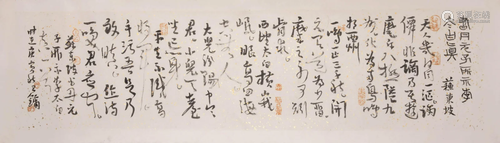 書丹元子所示李
太白真 蘇東坡
天人幾何同一漚謫
僊非謫乃其遊
麾斥八極隘九
州化為兩鳥鳴
相酬
一鳴一止三千秋開
元有道為少留
縻之不可矧
肯求
西望太白橫峨
岷眼高四海空
無人
大兒汾陽中令
君小兒天台
坐忘真
生年不識高將軍
手污吾足乃
敢瞋作詩
一笑君應聞